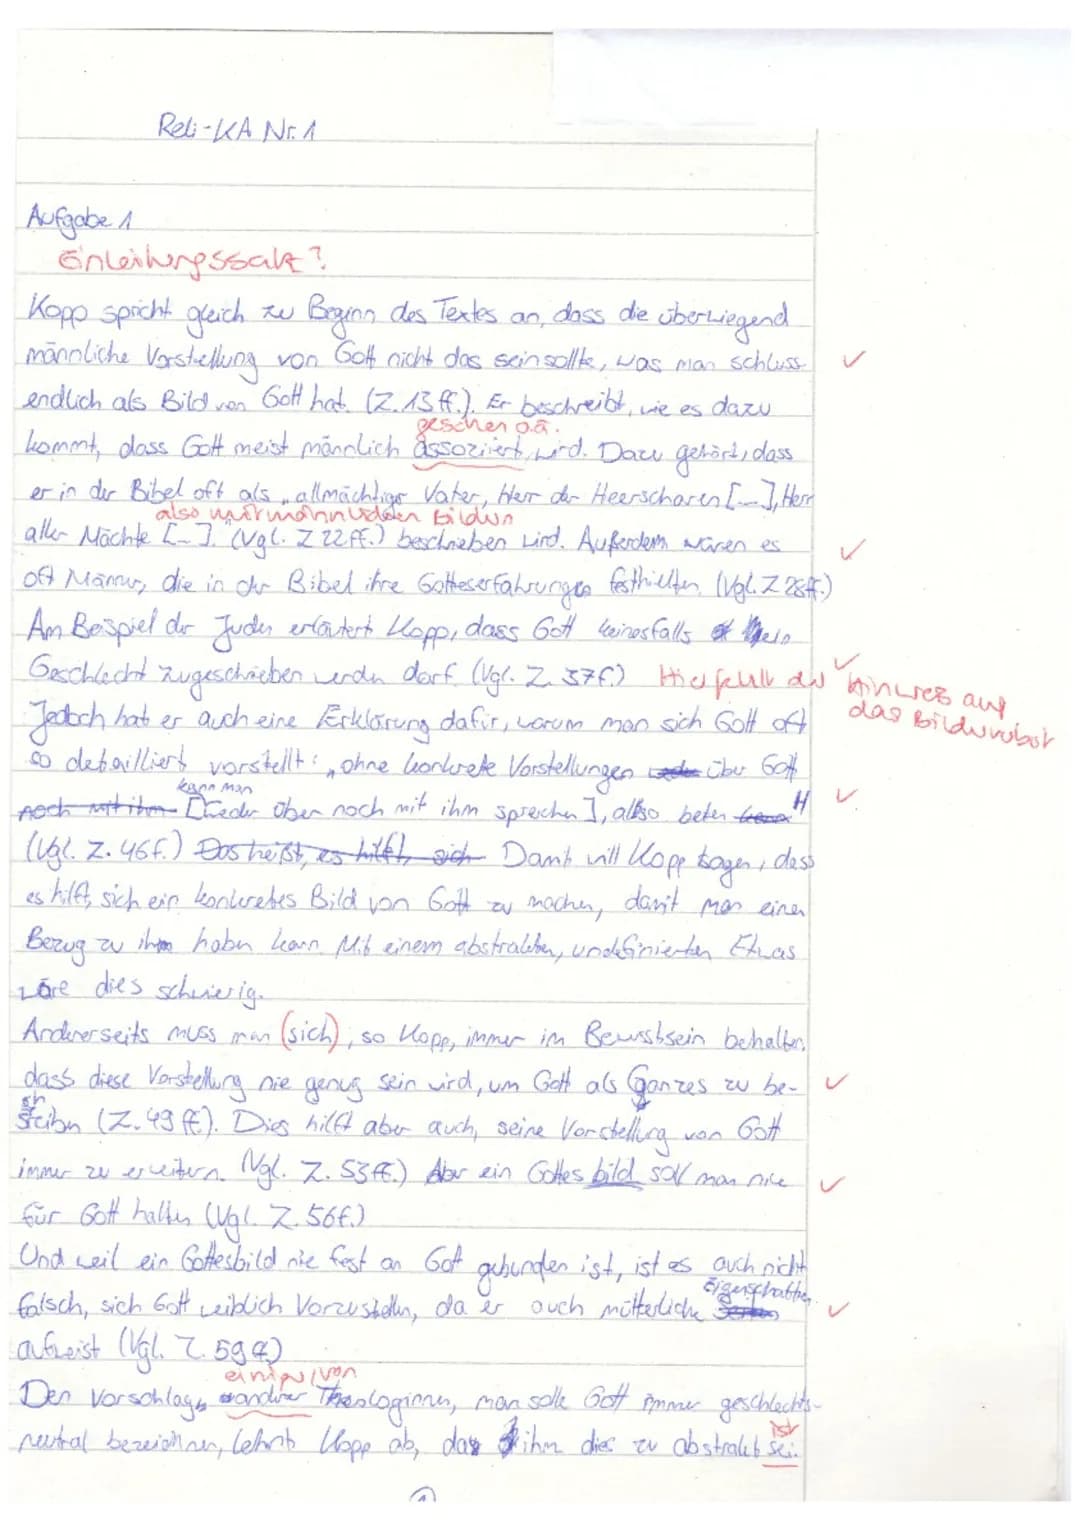 Reli-KA Nr. 1
Aufgabe 1
Einleitungssatz?
Kopp spricht gleich zu Beginn des Textes an, dass die überwiegend
männliche Vorstellung von Gott nicht das sein sollte, was man schluss-
endlich als Bild von Gott hat. (Z. 13 ff.). Er beschreibt, wie es dazu
gesehen o.ä.
kommt, dass Gott meist männlich assoziiert wird. Dazu gehört, dass
er in der Bibel oft als „allmächtiger Vater, Herr der Heerscharen [...], Herr
also mit männlichen Bildern
aller Mächte [...]." (Vgl. Z 22ff.) beschrieben wird. Außerdem wären es
oft Männer, die in der Bibel ihre Gotteserfahrungen festhielten. (Vgl. Z 28ff.)
Am Beispiel der Juden erläutert Kopp, dass Gott keinesfalls ein
Geschlecht zugeschrieben werden darf. (Vgl. Z. 37f.) Hier fehlt der Hinweis auf
das Bilderverbot
Jedoch hat er auch eine Erklärung dafür, warum man sich Gott oft
so detailliert vorstellt: „ohne konkrete Vorstellungen über Gott
kann man
noch mit ihm [weder über noch mit ihm sprechen], also beten"
(Vgl. Z. 46f.) Das heißt, es hilft, sich Damit will Kopp sagen, dass
es hilft, sich ein konkretes Bild von Gott zu machen, damit man einen
Bezug zu ihm haben kann. Mit einem abstrakten, undefinierten Etwas
wäre dies schwierig.
Andererseits muss man (sich), so Kopp, immer im Bewusstsein behalten,
dass diese Vorstellung nie genug sein wird, um Gott als Ganzes zu be-
schreiben (Z. 49 ff.). Dies hilft aber auch, seine Vorstellung von Gott
immer zu erweitern. (Vgl. Z. 53ff.) Aber ein Gottesbild soll man nie
für Gott halten (Vgl. Z. 56f.)
Und weil ein Gottesbild nie fest an Gott gebunden ist, ist es auch nicht
Eigenschaften
falsch, sich Gott weiblich vorzustellen, da er auch mütterliche
aufweist (Vgl. Z. 59 ff.)
einiger/von
Den Vorschlag, anderer Theologinnen, man solle Gott immer geschlechts-
ist
neutral bezeichnen, lehnt Kopp ab, da ihm dies zu abstrakt sei.
1